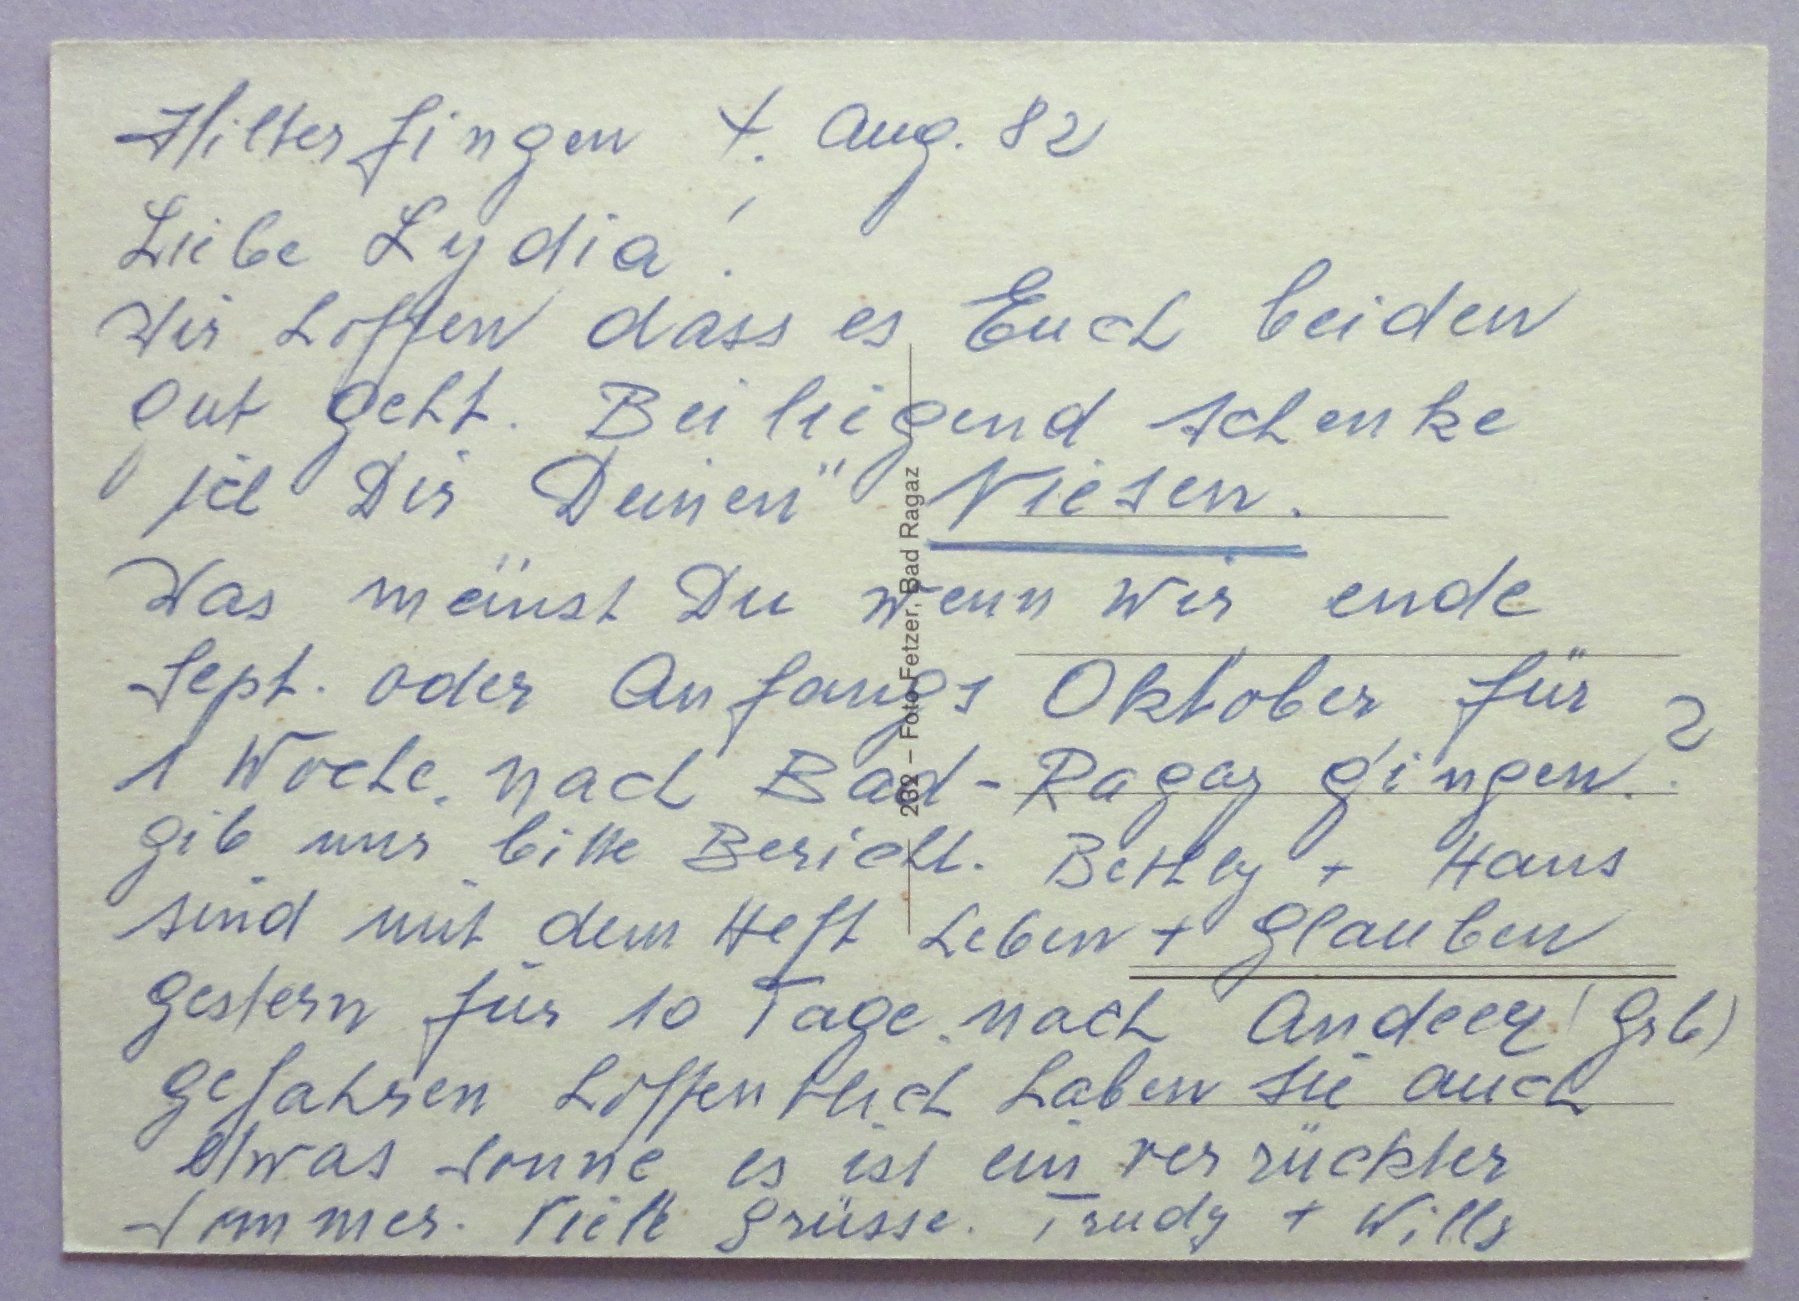 Hilterfingen 7. Aug. 82
Liebe Lydia!
Wir hoffen dass es Euch beiden
gut geht. Beiliegend schenke
ich Dir Deinen" Niesen.
Was meinst Du wenn wir ende
Sept. oder Anfangs Oktober für
1 Woche nach Bad-Ragaz gingen.?
gib uns bitte Bericht. Bethly + Hans
sind mit dem Heft Leben + Glauben
gestern für 10 Tage nach Andeer (Grb)
gefahren hoffentlich haben sie auch
etwas Sonne es ist ein verrückter
Sommer. Viele Grüsse. Trudy + Willy
232 – Foto Fetzer, Bad Ragaz